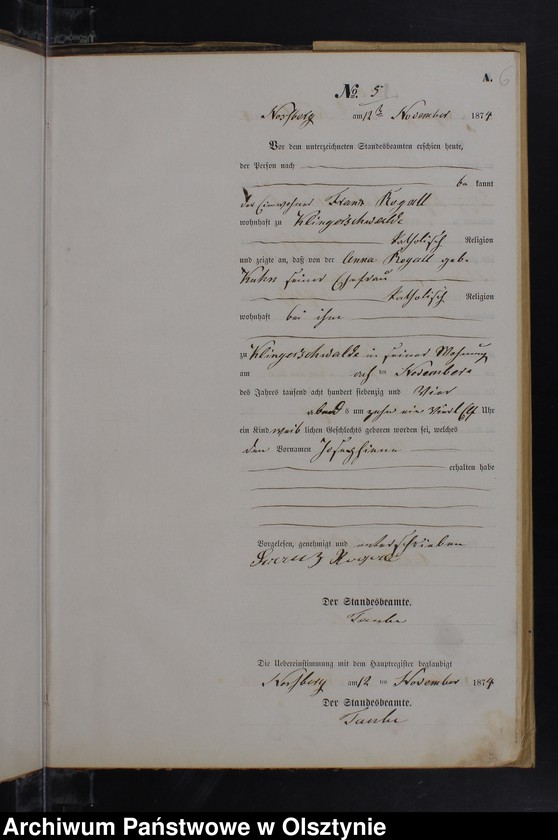 A. 6
No. 5
Nossberg am 12 November 1874
Vor dem unterzeichneten Standesbeamten erschien heute,
der Person nach
bekannt
der Einwohner Franz Rogall
wohnhaft zu Klingerschwalde
katholisch Religion
und zeigte an, daß von der Anna Rogall geb.
Kuhn seiner Ehefrau
katholisch Religion
wohnhaft bei ihm
zu Klingerschwalde in seiner Wohnung
am ten November
des Jahres tausend acht hundert siebenzig und Vier
abends um zehn ein Viertel Uhr
ein Kind weiblichen Geschlechts geboren worden sei, welches
den Vornamen Josephine
erhalten habe
Vorgelesen, genehmigt und unterschrieben
Franz Rogall
Der Standesbeamte.
Die Uebereinstimmung mit dem Hauptregister beglaubigt
Nossberg am 12 ten November 1874
Der Standesbeamte.
Archiwum Państwowe w Olsztynie